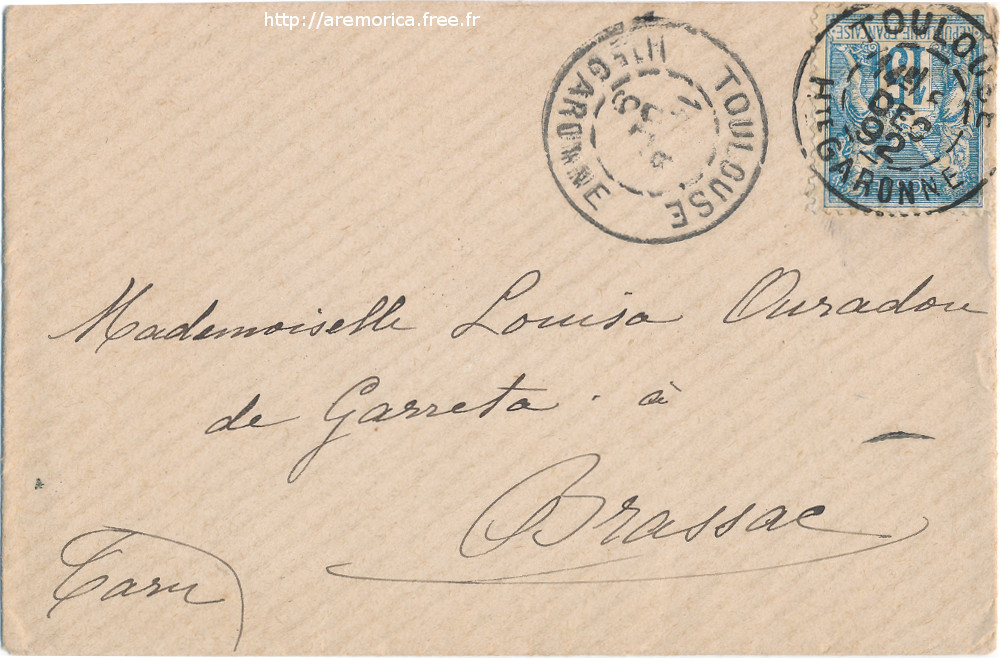 http://aremorica.free.fr
TOULOUSE
HTE GARONNE
TOULOUSE
DEC
92
HTE GARONNE
15
RÉPUBLIQUE FRANÇAISE
Mademoiselle Louisa Ouradou
de Garreta. à
Brassac
Tarn